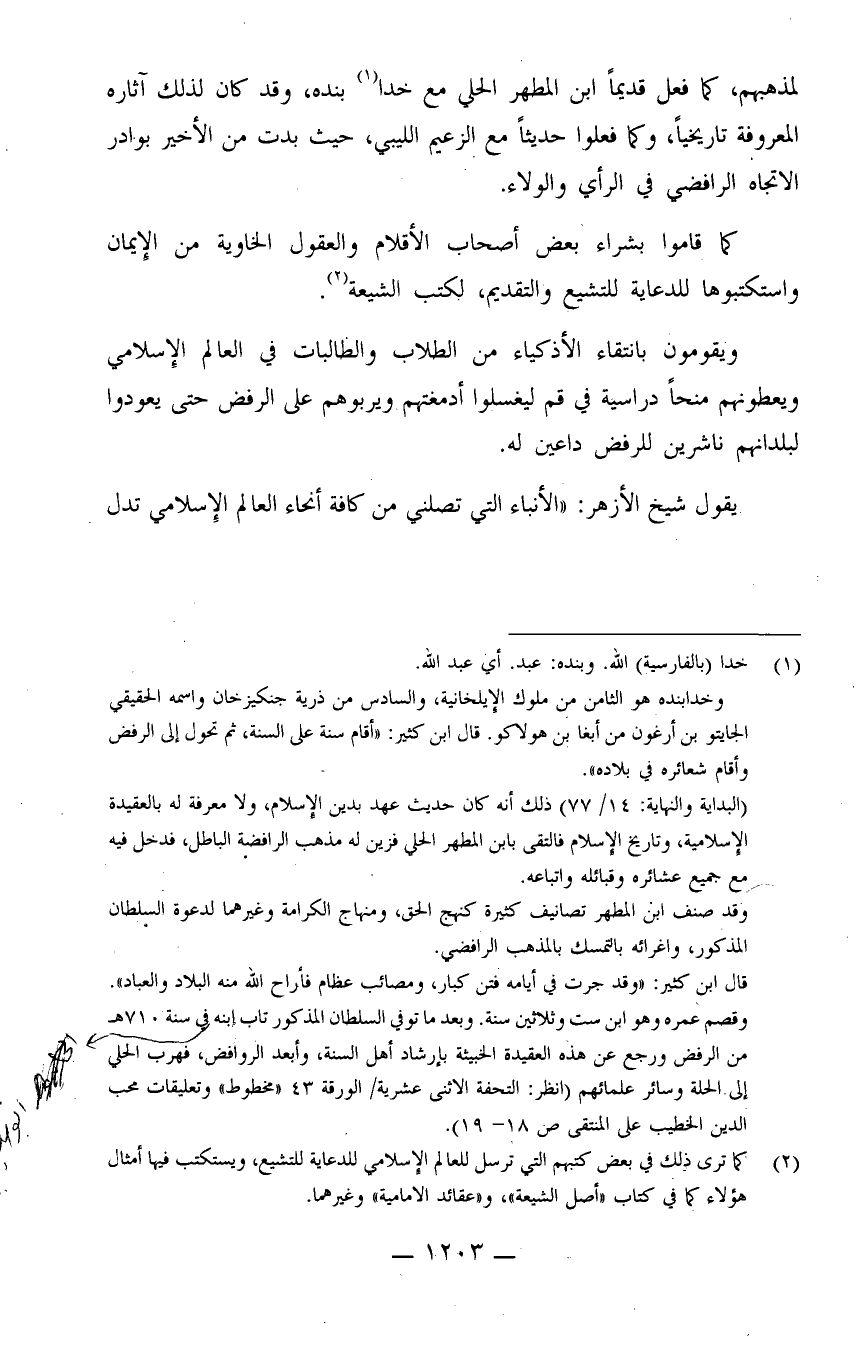 لمذهبهم، كما فعل قديماً ابن المطهر الحلي مع خدا(١) بنده، وقد كان لذلك آثاره
المعروفة تاريخياً، وكما فعلوا حديثاً مع الزعيم الليبي، حيث بدت من الأخير بوادر
الاتجاه الرافضي في الرأي والولاء.
كما قاموا بشراء بعض أصحاب الأقلام والعقول الخاوية من الإيمان
واستكتبوها للدعاية للتشيع والتقديم، لكتب الشيعة(٢).
ويقومون بانتقاء الأذكياء من الطلاب والطالبات في العالم الإسلامي
ويعطونهم منحاً دراسية في قم ليغسلوا أدمغتهم ويربوهم على الرفض حتى يعودوا
لبلدانهم ناشرين للرفض داعين له.
يقول شيخ الأزهر: «الأنباء التي تصلني من كافة أنحاء العالم الإسلامي تدل
(١) خدا (بالفارسية) الله. وبنده: عبد. أي عبد الله.
وخدابنده هو الثامن من ملوك الإيلخانية، والسادس من ذرية جنكيزخان واسمه الحقيقي
الجايتو بن أرغون من أبغا بن هولاكو. قال ابن كثير: «أقام سنة على السنة، ثم تحول إلى الرفض
وأقام شعائره في بلاده».
(البداية والنهاية: ١٤/ ٧٧) ذلك أنه كان حديث عهد بدين الإسلام، ولا معرفة له بالعقيدة
الإسلامية، وتاريخ الإسلام فالتقى بابن المطهر الحلي فزين له مذهب الرافضة الباطل، فدخل فيه
مع جميع عشائره وقبائله واتباعه.
وقد صنف ابن المطهر تصانيف كثيرة كنهج الحق، ومنهاج الكرامة وغيرهما لدعوة السلطان
المذكور، واغرائه بالتمسك بالمذهب الرافضي.
قال ابن كثير: «وقد جرت في أيامه فتن كبار، ومصائب عظام فأراح الله منه البلاد والعباد».
وقصم عمره وهو ابن ست وثلاثين سنة. وبعد ما توفي السلطان المذكور تاب إبنه في سنة ٧١٠هـ
من الرفض ورجع عن هذه العقيدة الخبيثة بإرشاد أهل السنة، وأبعد الروافض، فهرب الحلي
إلى الحلة وسائر علمائهم (انظر: التحفة الاثنى عشرية/ الورقة ٤٣ «مخطوط» وتعليقات محب
الدين الخطيب على المنتقى ص ١٨- ١٩).
(٢) كما ترى ذلك في بعض كتبهم التي ترسل للعالم الإسلامي للدعاية للتشيع، ويستكتب فيها أمثال
هؤلاء كما في كتاب «أصل الشيعة»، و«عقائد الامامية» وغيرهما.
— ١٢٠٣ —